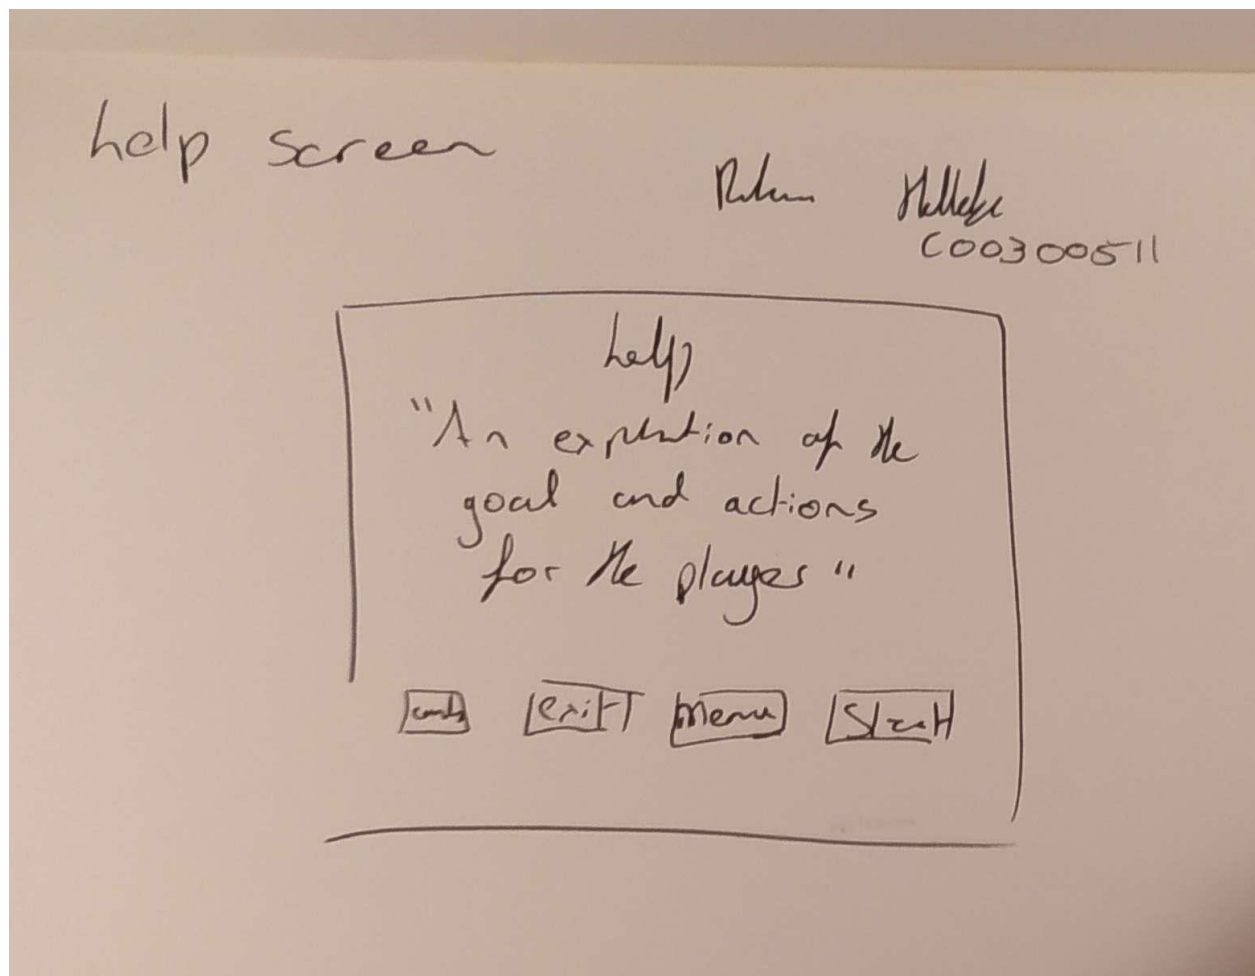 help screen
C00300511
help
"An explation of the
goal and actions
for the players"
exit Menu Start